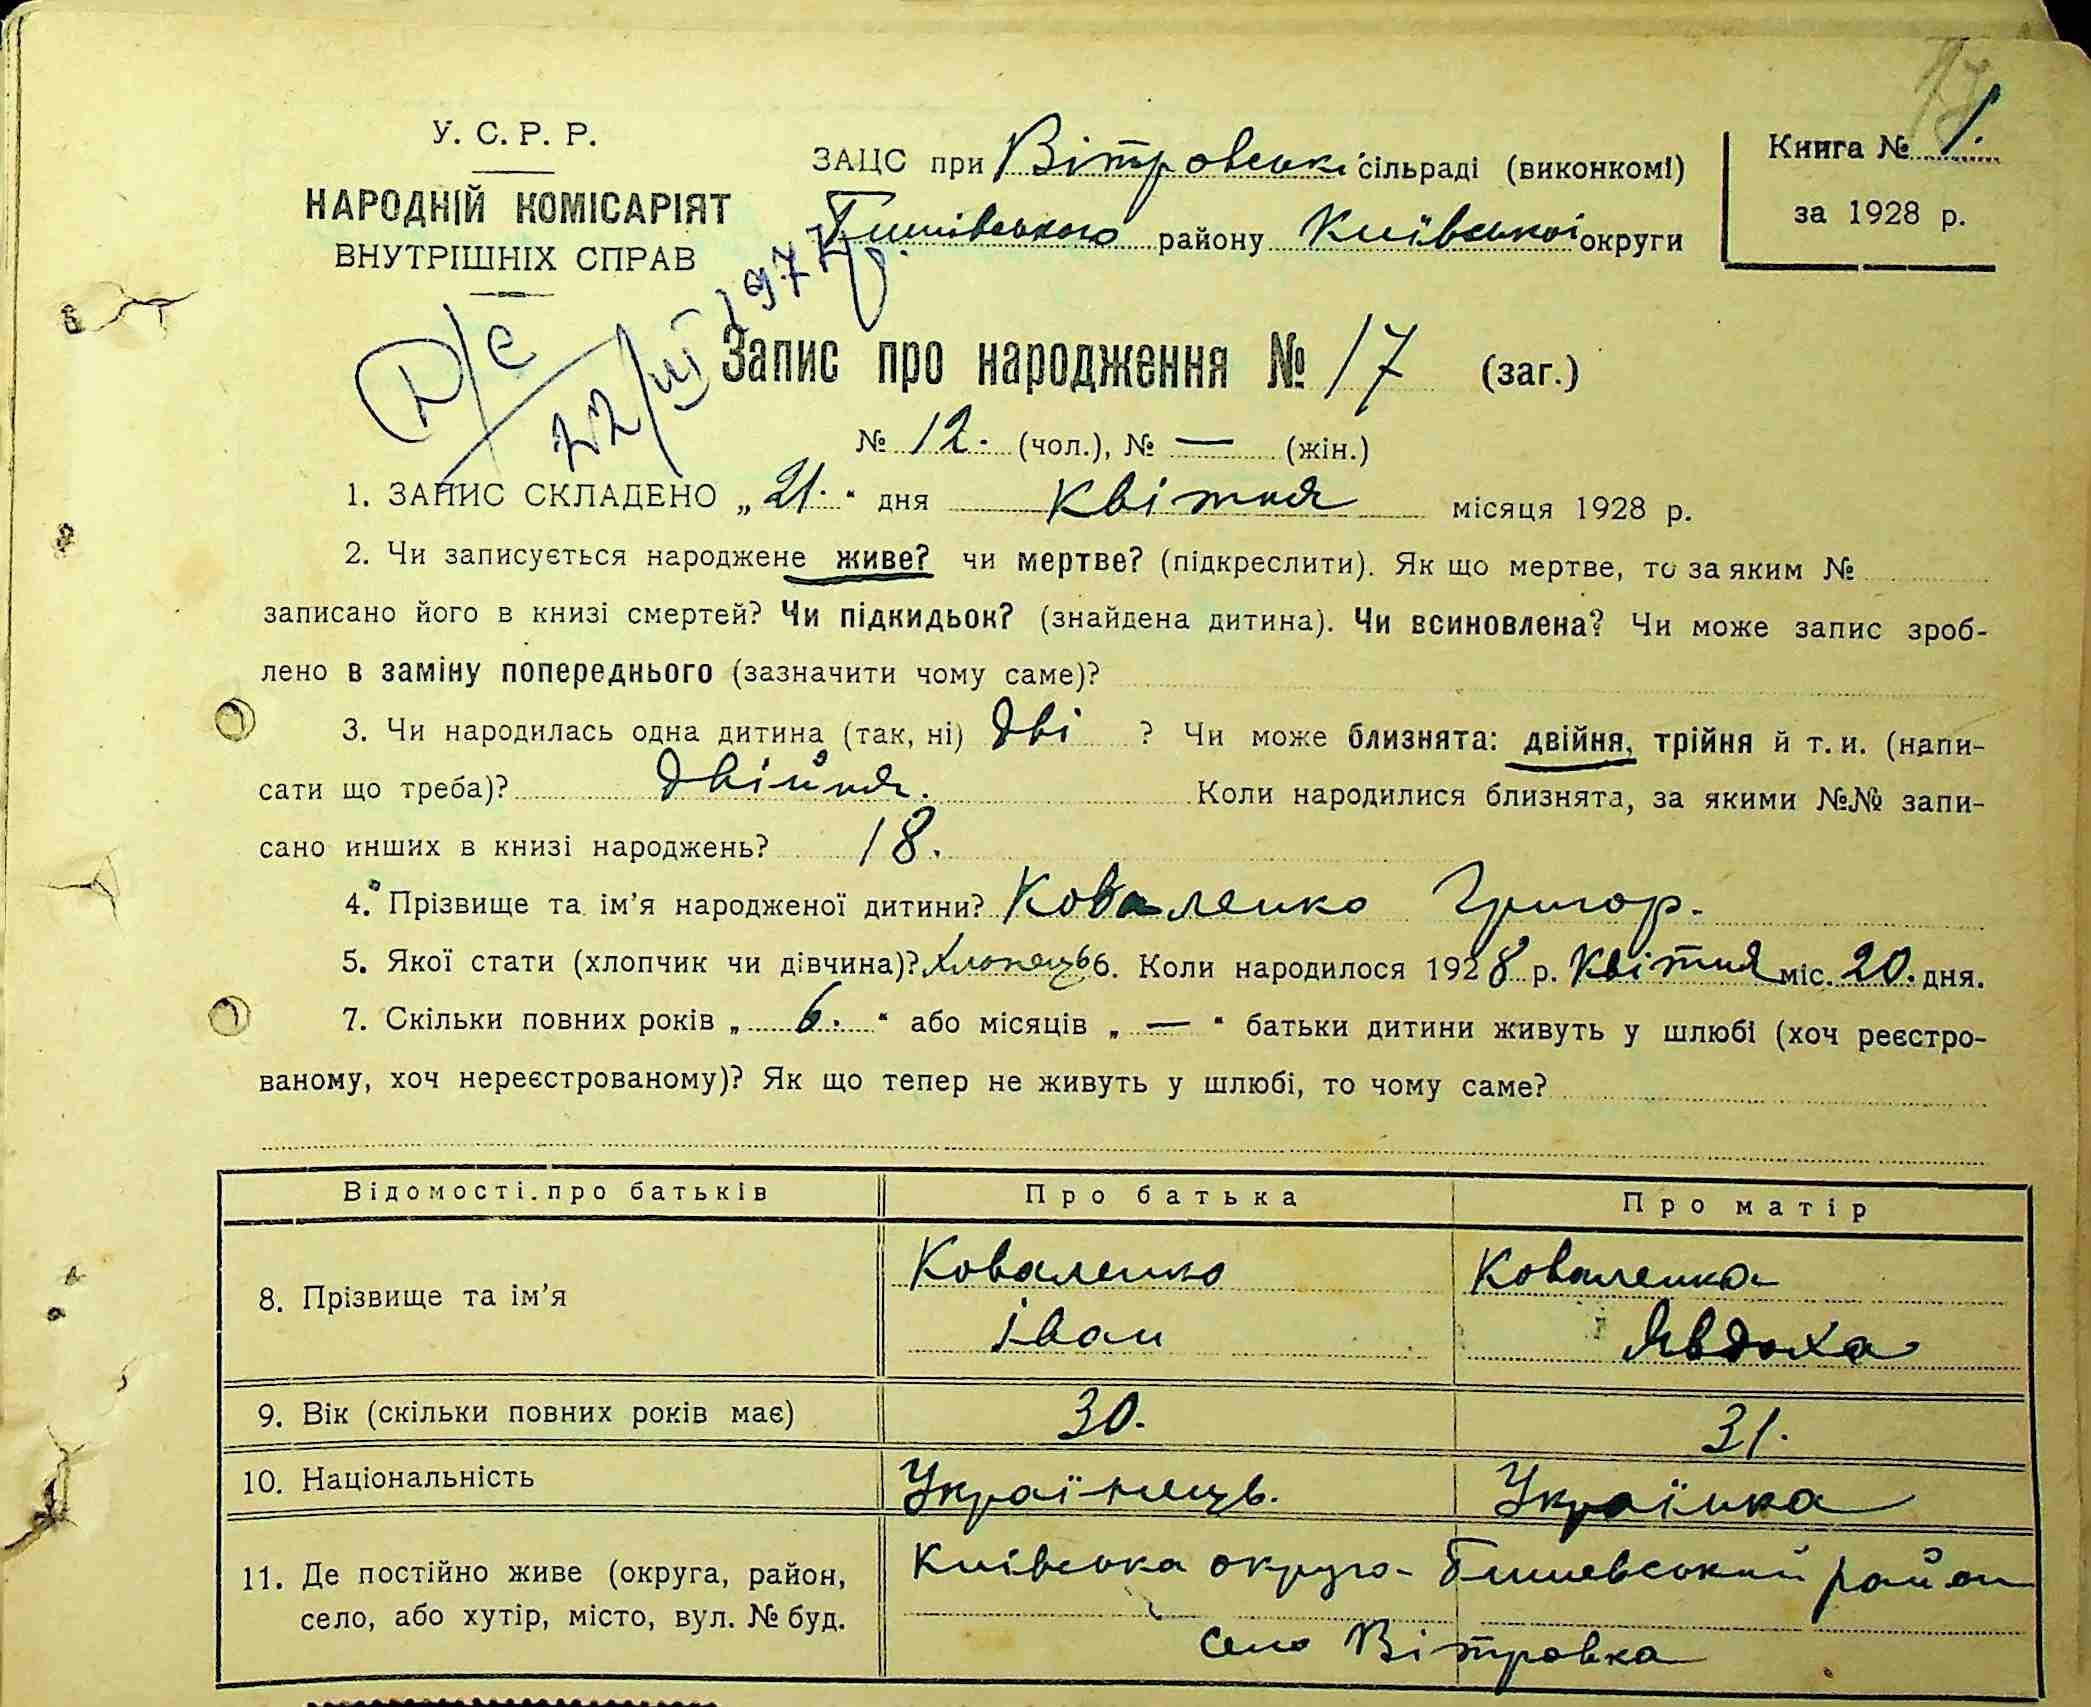 17
У. С. Р. Р.
НАРОДНІЙ КОМІСАРІЯТ
ВНУТРІШНІХ СПРАВ
ЗАЦС при Вітровські сільраді (виконкомі)
Бишівського району Київської округи
Книга № 1.
за 1928 р.
22/VII 1977 р.
Запис про народження № 17 (заг.)
№ 12. (чол.), № — (жін.)
1. ЗАПИС СКЛАДЕНО „21.“ дня квітня місяця 1928 р.
2. Чи записується народжене живе? чи мертве? (підкреслити). Як що мертве, то за яким №
записано його в книзі смертей? Чи підкидьок? (знайдена дитина). Чи всиновлена? Чи може запис зроб-
лено в заміну попереднього (зазначити чому саме)?
3. Чи народилась одна дитина (так, ні) дві ? Чи може близнята: двійня, трійня й т. и. (напи-
сати що треба)? двійня. Коли народилися близнята, за якими №№ запи-
сано инших в книзі народжень? 18.
4. Прізвище та ім’я народженої дитини? Коваленко Григор.
5. Якої стати (хлопчик чи дівчина)? хлопець 6. Коли народилося 1928 р. квітня міс. 20. дня.
7. Скільки повних років „ 6. “ або місяців „ — “ батьки дитини живуть у шлюбі (хоч реєстро-
ваному, хоч нереєстрованому)? Як що тепер не живуть у шлюбі, то чому саме?
Відомості про батьків Про батька Про матір
8. Прізвище та ім’я Коваленко Іван Коваленка Явдоха
9. Вік (скільки повних років має) 30. 31.
10. Національність Українець. Українка
11. Де постійно живе (округа, район, Київська округа Бишевський район
село, або хутір, місто, вул. № буд. село Вітровка